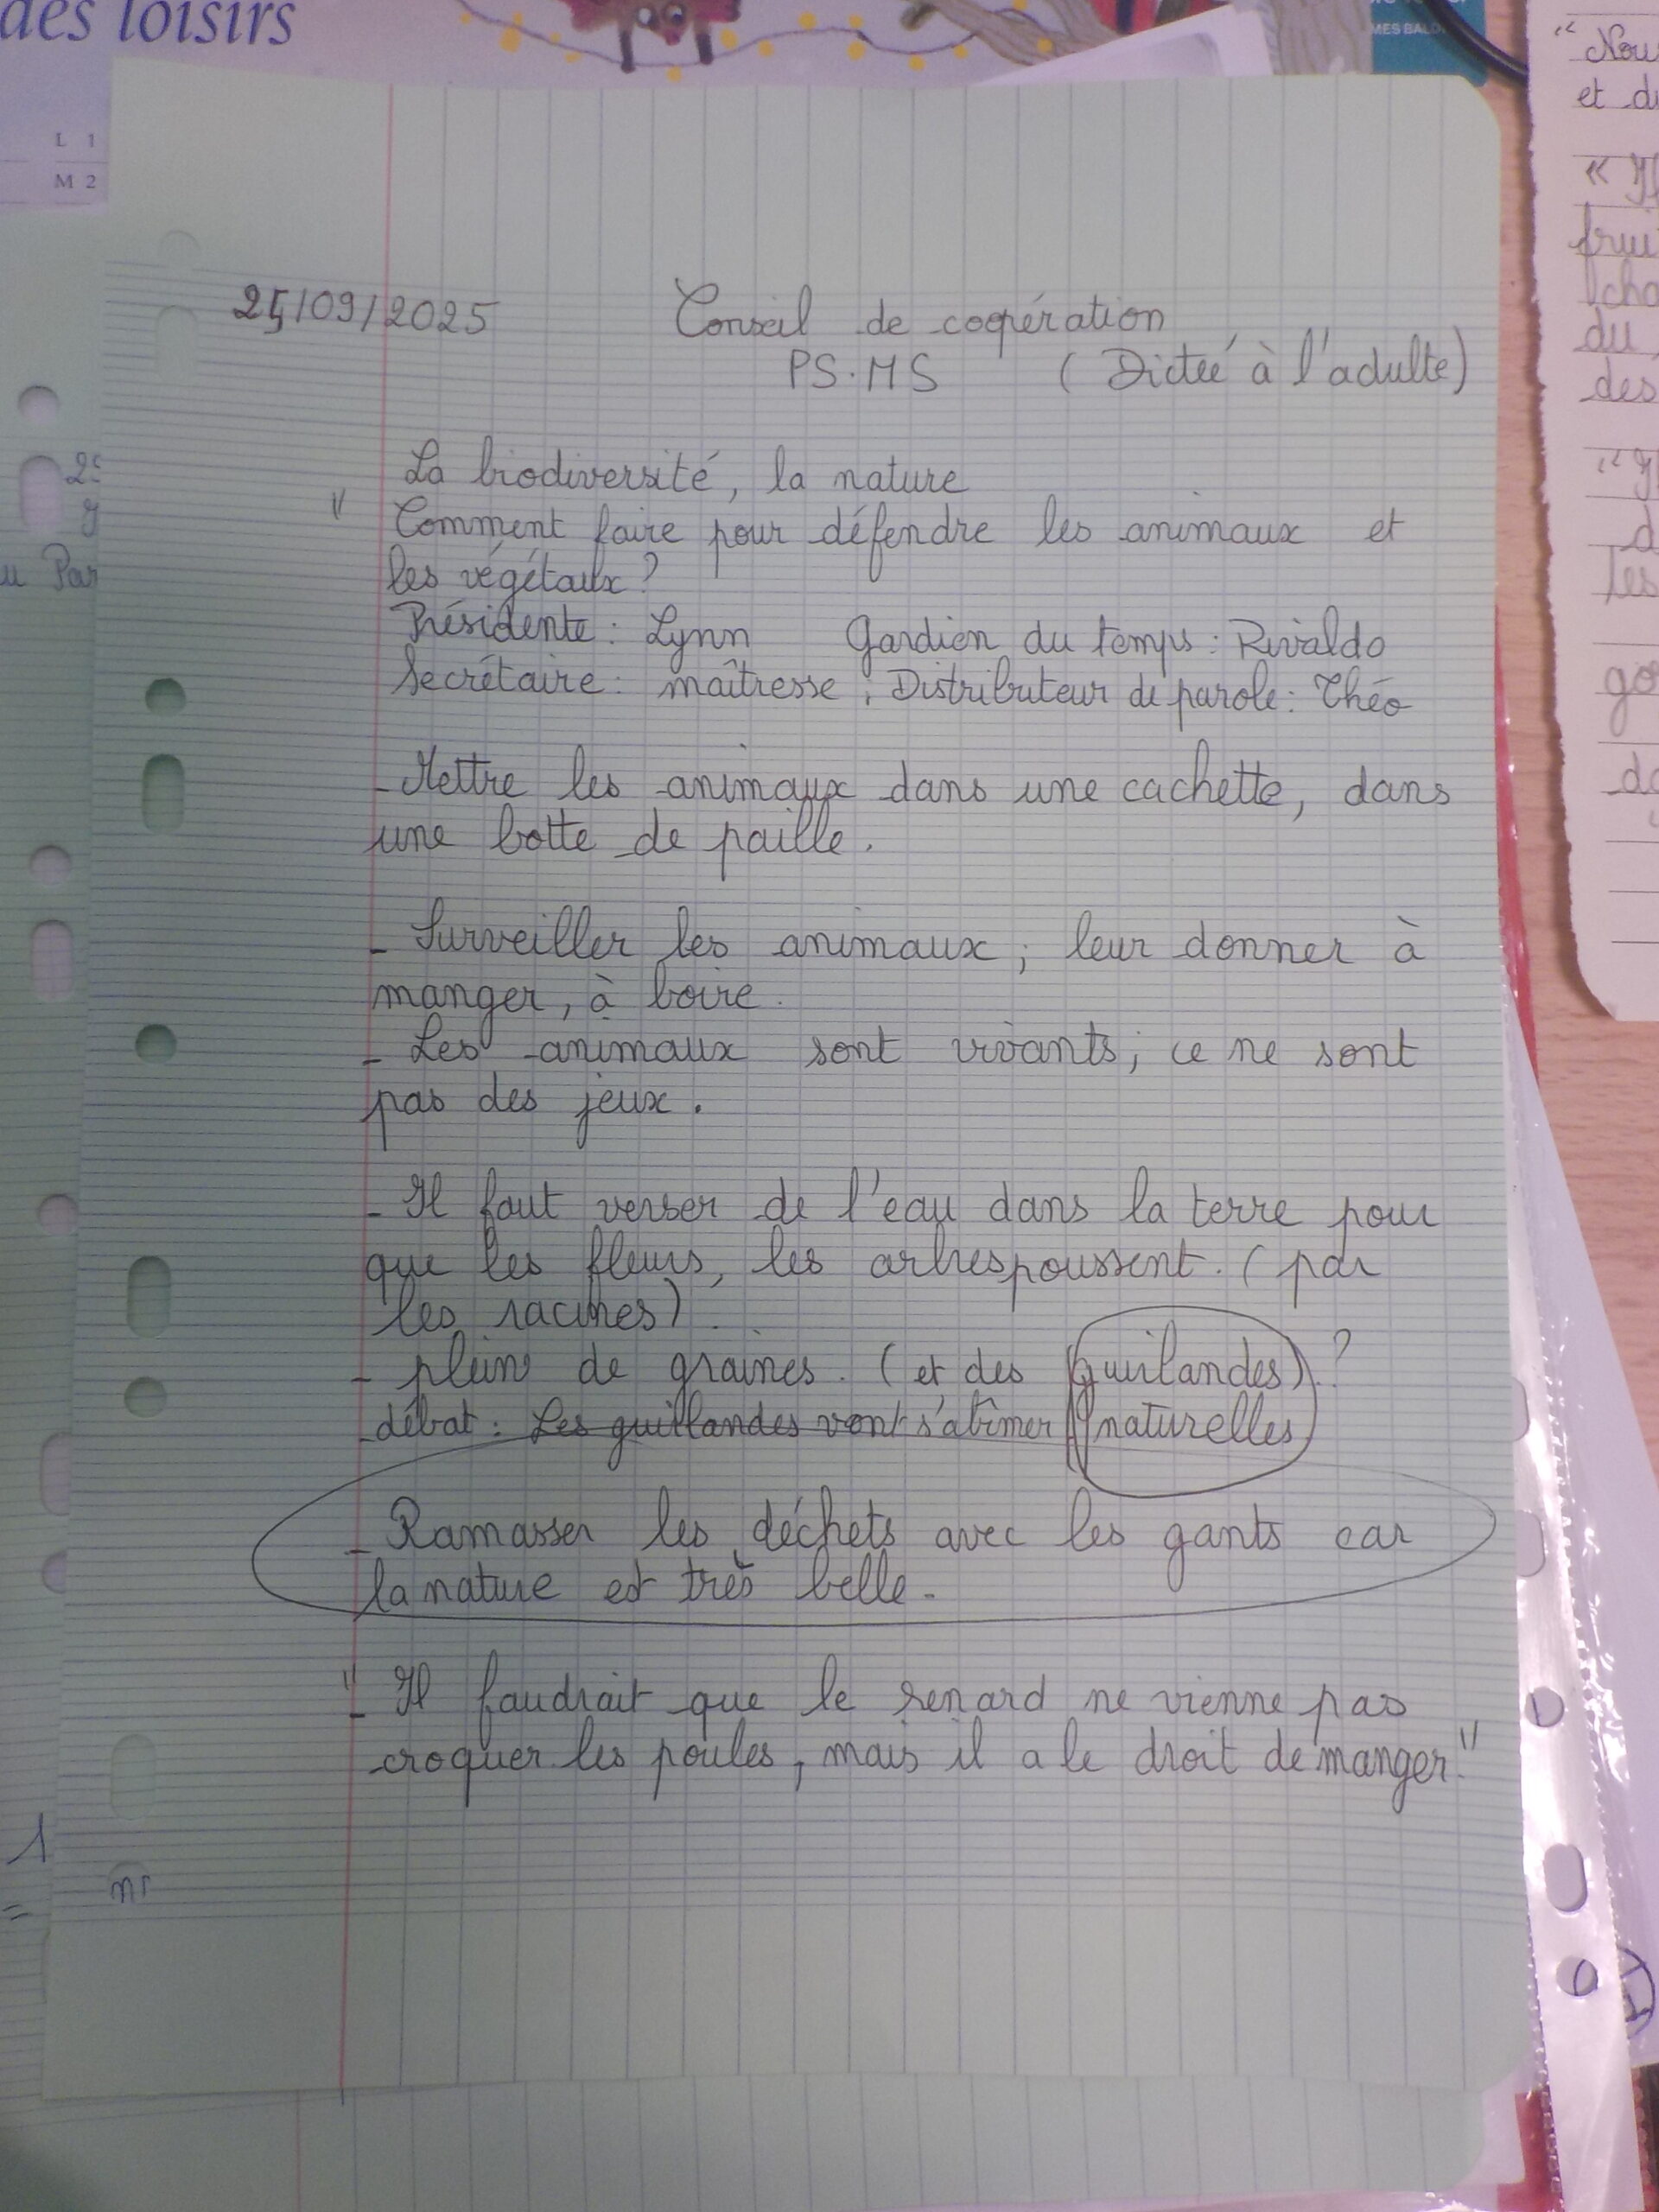 des loisirs
L 1
M 2
MES BALD
25/09/2025 Conseil de coopération
PS.MS (Dictée à l'adulte)
La biodiversité, la nature
" Comment faire pour défendre les animaux et
les végétaux ?
Présidente : Lynn Gardien du temps : Rivaldo
Secrétaire : maîtresse ; Distributeur de parole : Théo
- Mettre les animaux dans une cachette, dans
une botte de paille.
- Surveiller les animaux ; leur donner à
manger, à boire.
- Les animaux sont vivants ; ce ne sont
pas des jeux.
- Il faut verser de l'eau dans la terre pour
que les fleurs, les arbres poussent. (par
les racines).
- plein de graines. (et des guirlandes). ?
- débat : Les guirlandes vont s'abîmer naturelles
- Ramasser les déchets avec les gants car
la nature est très belle.
"- Il faudrait que le renard ne vienne pas
croquer les poules, mais il a le droit de manger."
"Nou
et du
"Il
frui
cho
du
des
"Il
d
Les
go
da
u Par
1
=